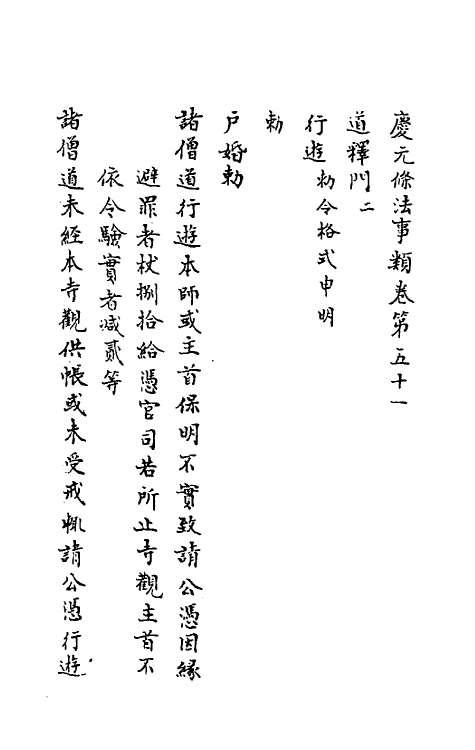 慶元條法事類卷第五十一
道釋門二
行遊勑令格式申明
勑
戶婚勑
諸僧道行遊本師或主首保明不實致請公憑因緣
避罪者杖捌拾給憑官司若所止寺觀主首不
依令驗實者減貳等
諸僧道未經本寺觀供帳或未受戒輒請公憑行遊